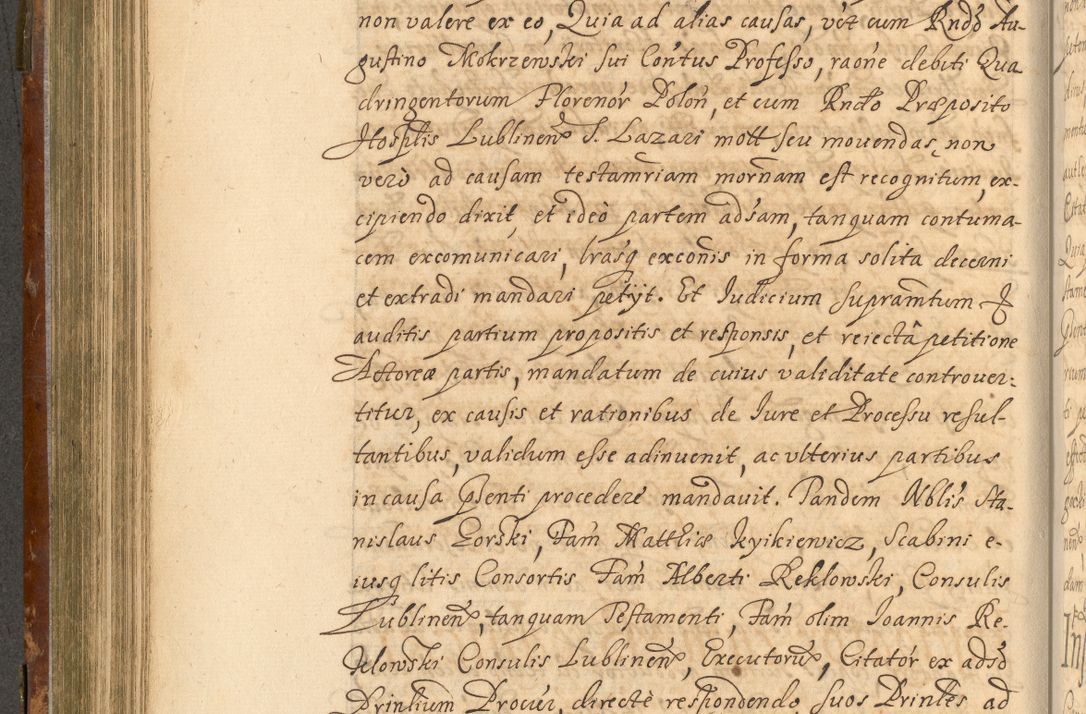 non valere ex eo, Quia ad alias causas, vt cum Rndo Au-
gustino Mokrzewski sui Contus Professo, raone debiti Qua
dringentorum Florenor Polon, et cum Rndo Præposito
Hosplis Lublinen S. Lazari mott seu mouendas, non
vero ad causam testamriam mornam est recognitum, ex-
cipiendo dixit, et ideò partem adsam, tanquam contuma-
cem excomunicari, lrasq exconis in forma solita decerni
et extradi mandari petijt. Et Iudicium supramtum
auditis partium propositis et responsis, et reiectâ petitione
Actoreæ partis, mandatum de cuius validitate controuer:
titur, ex causis et rationibus de Iure et Processu resul-
tantibus, validum esse adinuenit, ac vlterius partibus
in causa psenti procedere mandauit. Tandem Nblis Sta-
nislaus Gorski, Fam Matthiæ Kyikiewicz, Scabini e-
iusq litis Consortis Fam Alberti Reklowski, Consulis
Lublinen, tanquam Testamenti, Fam olim Ioannis Re-
klowski Consulis Lublinen, Executoru, Citator ex adso
Prinlium Procur, directè respondendo, suos Prinles ad